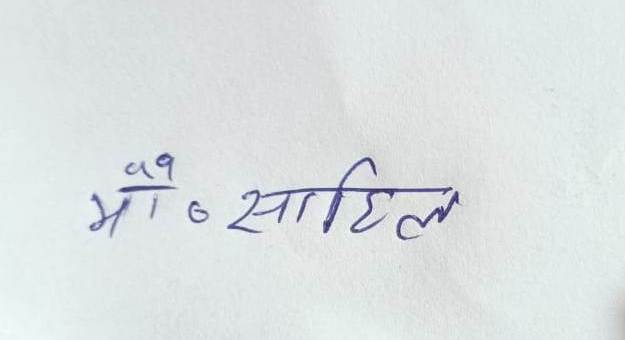 मो० साहिल